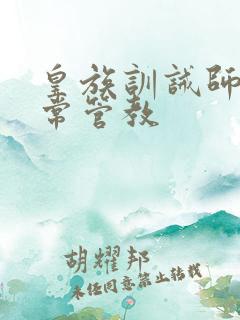 皇族訓誡師
常管教
胡耀邦
未经同意禁止转载